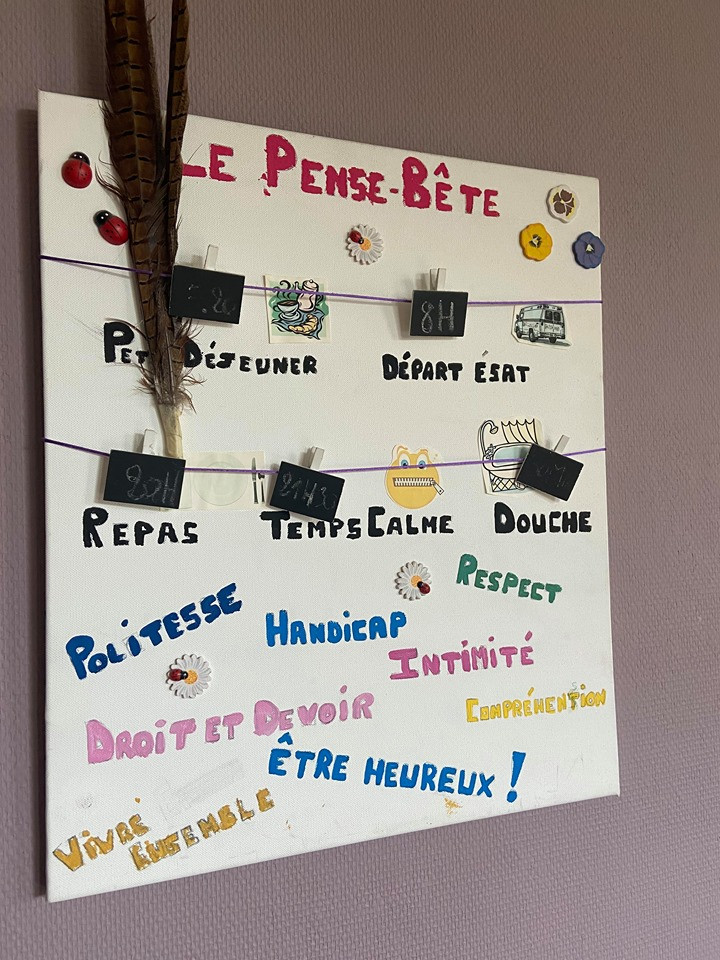 LE PENSE-BÊTE
8H
PET DÉJEUNER
DÉPART ÉSAT
20H
21H30
REPAS
TEMPS CALME
DOUCHE
RESPECT
POLITESSE
HANDICAP
INTIMITÉ
DROIT ET DEVOIR
COMPRÉHENTION
ÊTRE HEUREUX !
VIVRE
ENSEMBLE